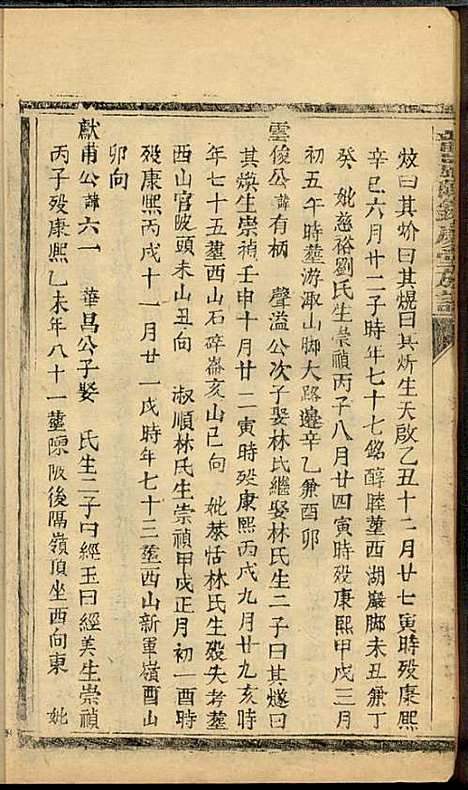 炇曰其蚧曰其熀曰其炘生天啟乙丑十二月廿七寅時歿康熙
辛巳六月廿二子時年七十七銘醇睦塟西湖巖脚未丑兼丁
癸 妣慈裕劉氏生崇禎丙子八月廿四寅時歿康熙甲戌三月
初五午時塟游溵山脚大路邊辛乙兼酉卯
雲俊公諱有柄 聲溢公次子娶林氏繼娶林氏生二子曰其燧曰
其熼生崇禎壬申十月廿二寅時歿康熙丙戌九月廿九亥時
年七十五塟西山石碎崙亥山巳向 妣恭恬林氏生歿失考塟
西山官陂頭未山丑向 淑順林氏生崇禎甲戌正月初一酉時
歿康熙丙戌十一月廿一戌時年七十三塟西山新軍嶺酉山
卯向
獻甫公諱六一 華昌公子娶 氏生二子曰經玉曰經美生崇禎
丙子歿康熙乙未年八十一塟陳陂後隔嶺頂坐西向東 妣